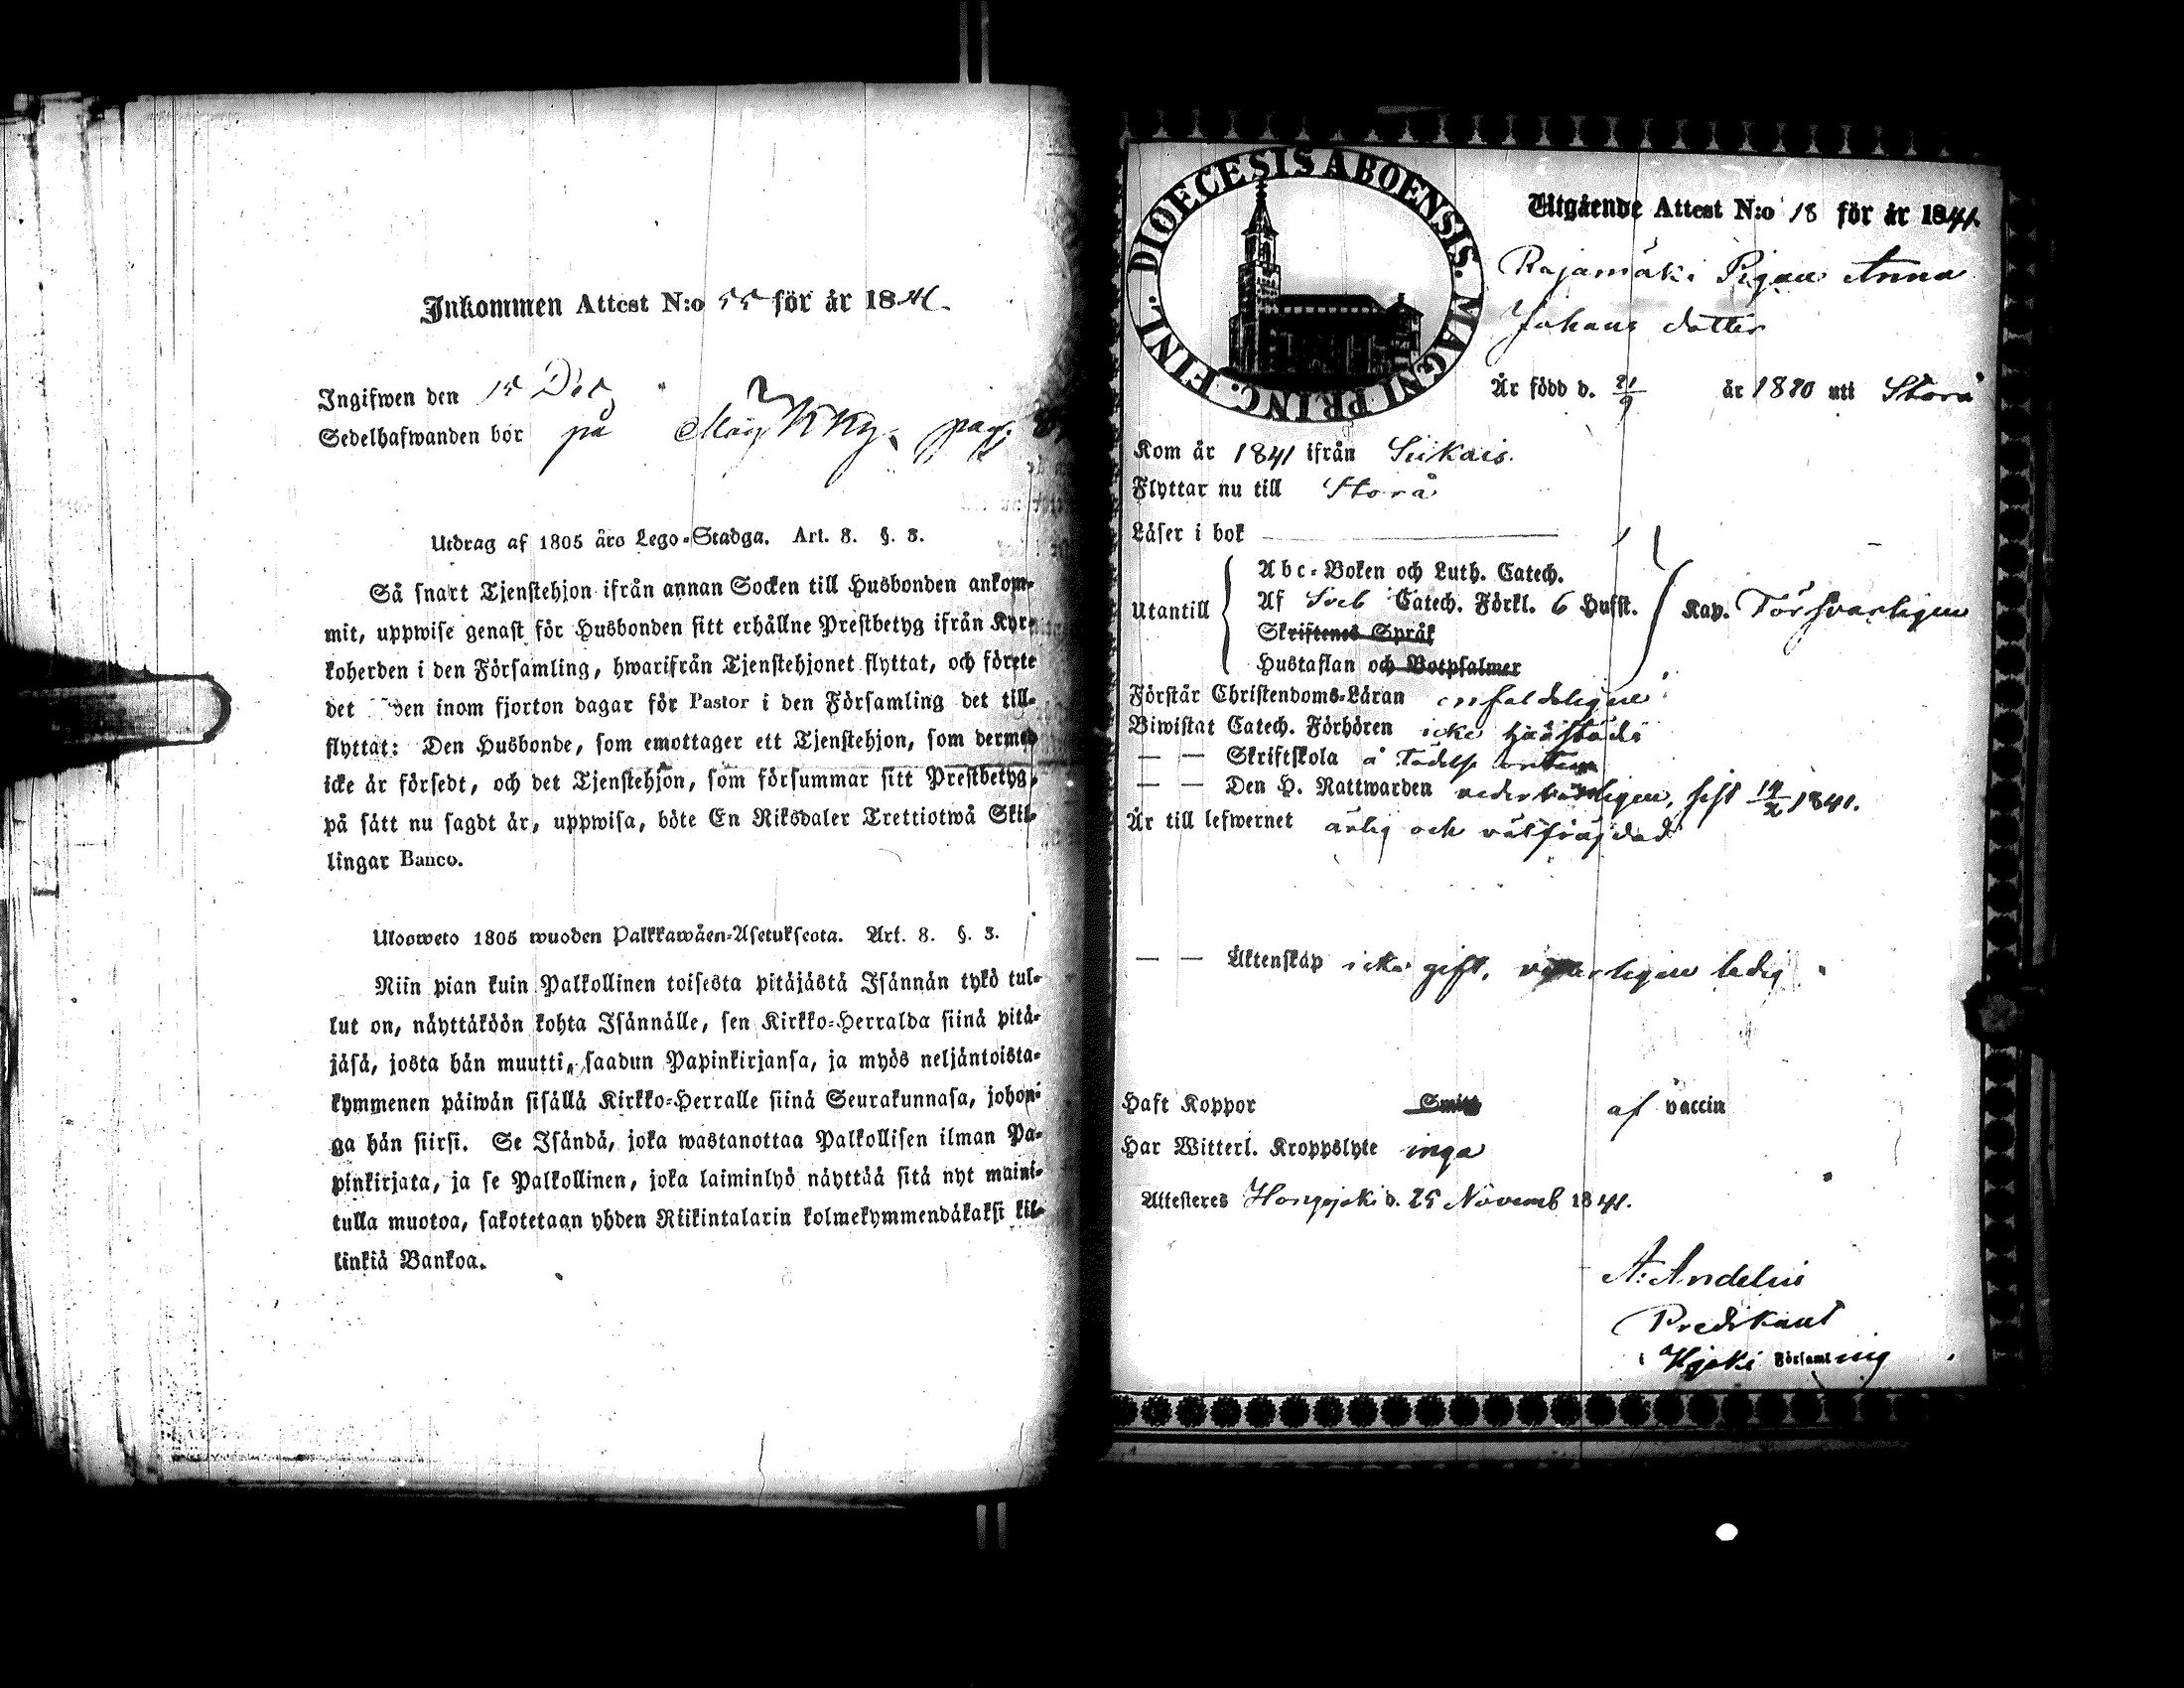 Inkommen Attest N:o 55 för år 1841.
Ingifwen den 15 Dec
Sedelhafwanden bor på pag.
Utdrag af 1805 års Lego-Stadga. Art. 8. §. 3.
Så snart Tjenstehjon ifrån annan Socken till Husbonden ankom-
mit, uppwise genast för Husbonden sitt erhållne Prestbetyg ifrån Kyr-
koherden i den Församling, hwarifrån Tjenstehjonet flyttat, och förete
det inom fjorton dagar för Pastor i den Församling det till-
flyttat: Den Husbonde, som emottager ett Tjenstehjon, som dermed
icke är försedt, och det Tjenstehjon, som försummar sitt Prestbetyg,
på sätt nu sagdt är, uppwisa, böte En Riksdaler Trettiotwå Skil-
lingar Banco.
Ulosweto 1805 wuoden Palkkawäen-Asetuksesta. Art. 8. §. 3.
Niin pian kuin Palkollinen toisesta pitäjästä Isännän tykö tul-
lut on, näyttäköön kohta Isännälle, sen Kirkko-Herralda siinä pitä-
jäsä, josta hän muutti, saadun Papinkirjansa, ja myös neljäntoista-
kymmenen päiwän sisällä Kirkko-Herralle siinä Seurakunnasa, johon-
ga hän siirsi. Se Isändä, joka wastanottaa Palkollisen ilman Pa-
pinkirjata, ja se Palkollinen, joka laiminlyö näyttää sitä nyt maini-
tulla muotoa, sakotetaan yhden Riikintalarin kolmekymmendäkaksi kil-
linkiä Bankoa.
DIOECESIS ABOENSIS. MAGNI PRINC. FINL.
Utgående Attest N:o 18 för år 1841.
Rajamäki Pigan Anna
Johans dotter
Är född d. 21/9 år 1820 uti Storå
Kom år 1841 ifrån Siikais.
Flyttar nu till Storå
Läser i bok
Utantill
Abc-Boken och Luth. Catech.
Af Sveb Catech. Förkl. 6 Hufst.
Skriftenes Språk
Hustaflan och Botpsalmer
Kap. Försvarligen
Förstår Christendoms-Läran enfaldeligen
Biwistat Catech. Förhören icke härstädes
— — Skriftskola å Födelse orten
— — Den H. Nattwarden vederbörligen, sist 1841.
Är till lefwernet ärlig och välfräjdad
— — Äktenskap icke gift, ledig
Haft Koppor Smitt af vaccin
Har Witterl. Kroppslyte inga
Attesteres Hongojoki d. 25 Novemb 1841.
A. Andelin
Predikant
i Hjoki Församling